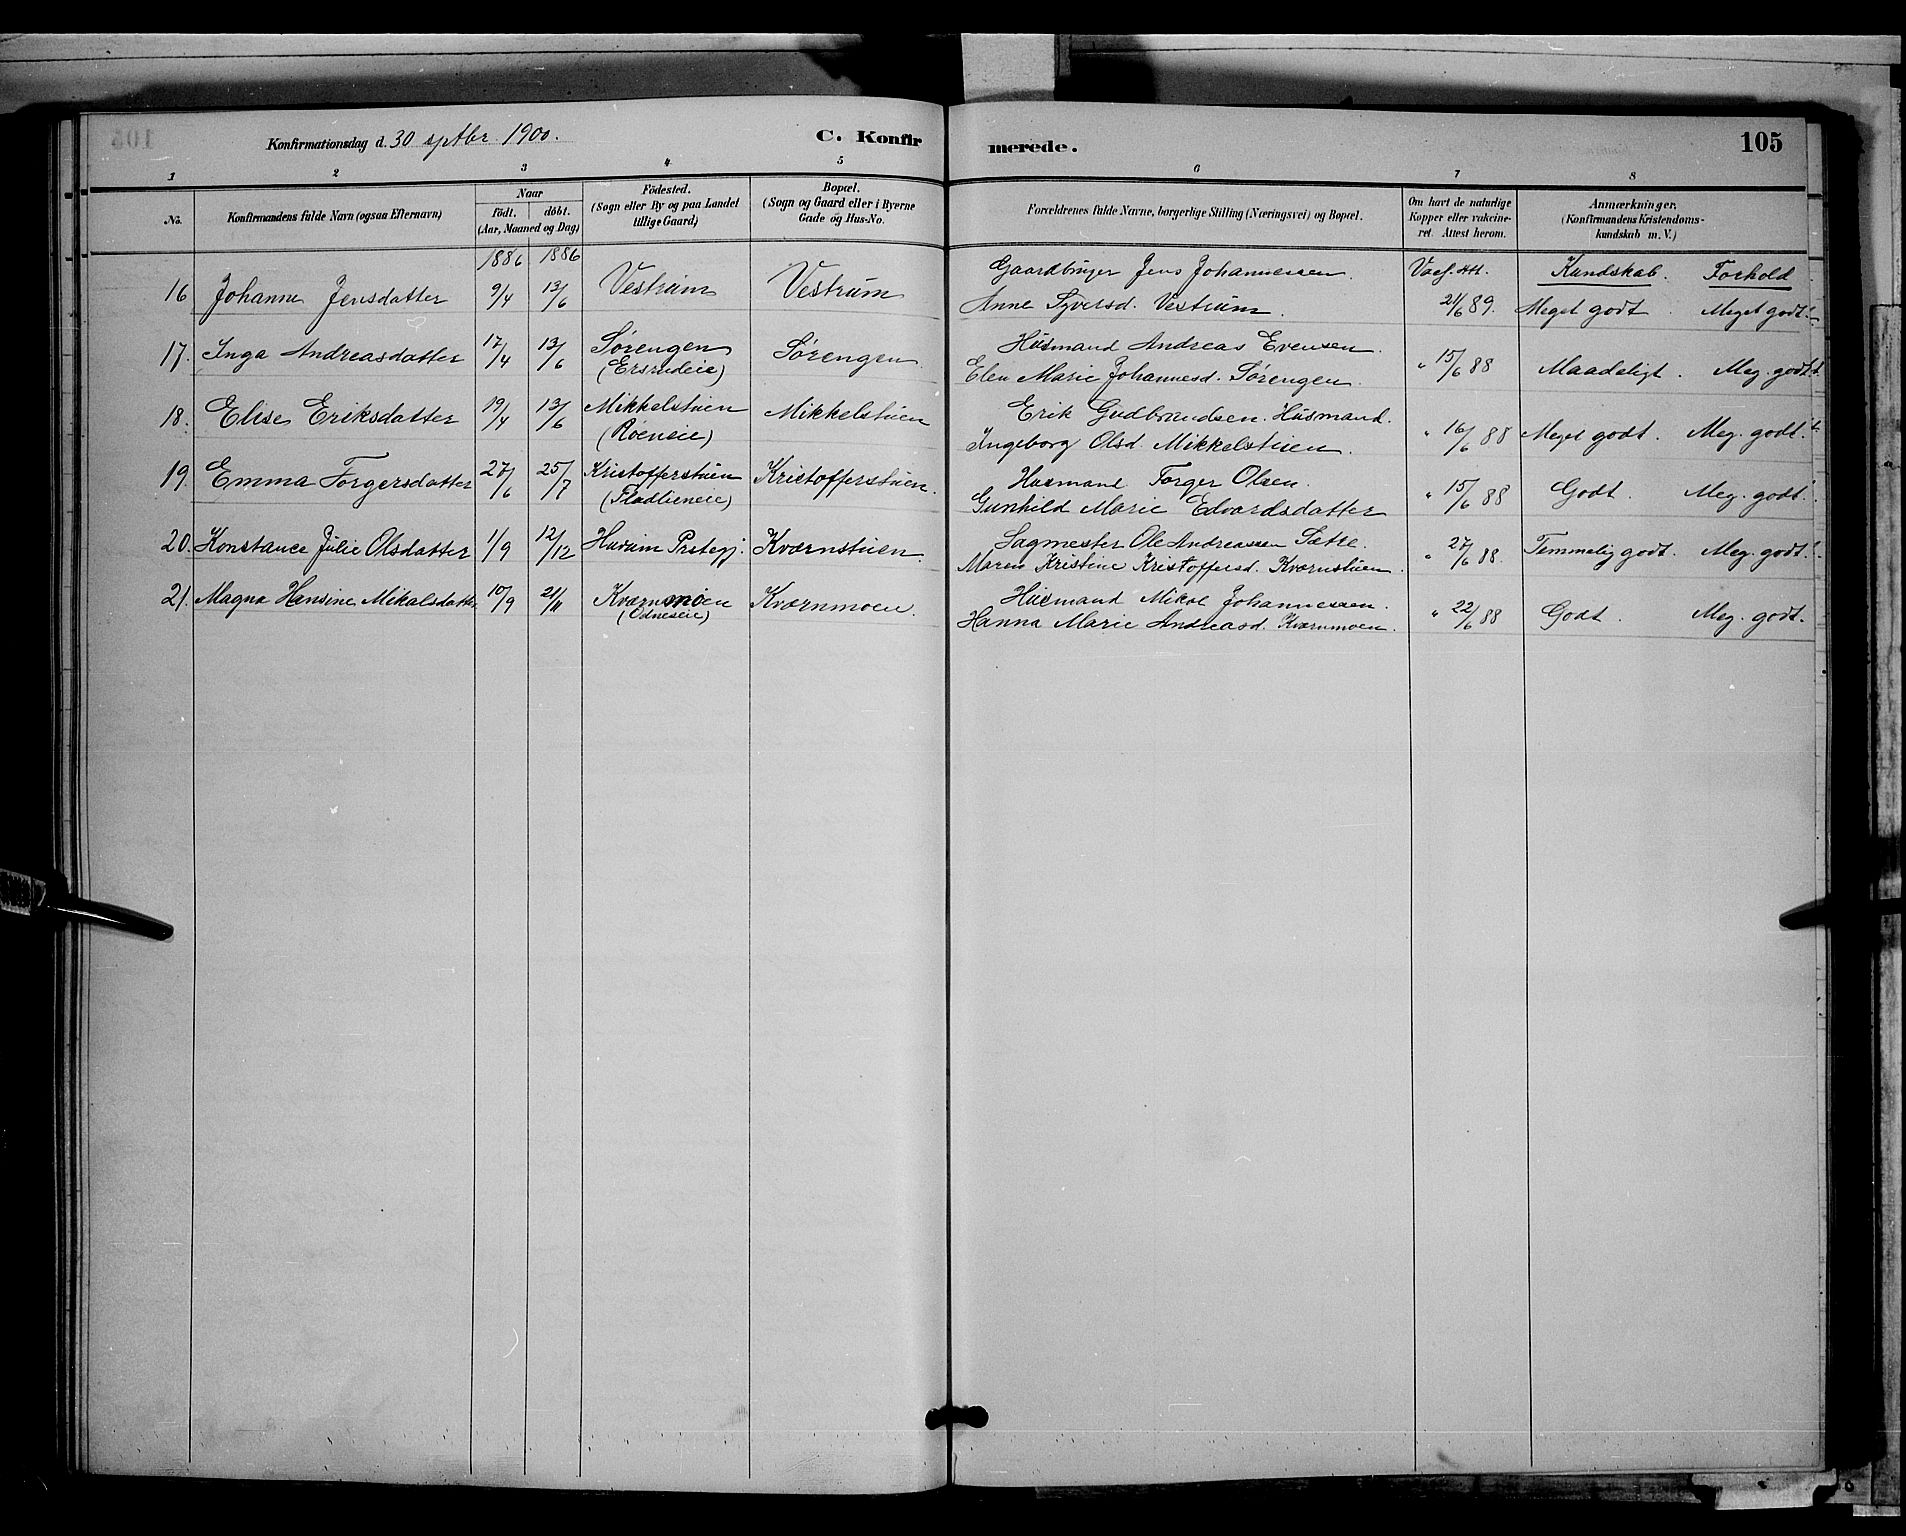 Konfirmationsdag d. 30 septbr 1900.
C. Konfirmerede.
105
1 2 3 4 5 6 7 8
No.
Konfirmandens fulde Navn (ogsaa Efternavn)
Naar
født. døbt.
(Aar, Maaned og Dag)
Födested.
(Sogn eller By og paa Landet
tillige Gaard)
Bopæl.
(Sogn og Gaard eller i Byerne
Gade og Hus-No.
Forældrenes fulde Navne, borgerlige Stilling (Næringsvei) og Bopæl.
Om havt de naturlige
Kopper eller vakcine-
ret. Attest herom.
Anmærkninger.
(Konfirmandens Kristendoms-
kundskab m. V.)
1886 1886
Gaardbruger Jens Johannessen. Vacc. att. Kundskab. Forhold
16 Johanne Jensdatter 9/4 13/6 Vestrum Vestrum
Anne Syversd. Vestrum. 21/6 89. Meget godt. Meget godt.
17. Inga Andreasdatter 17/4 13/6 Sørengen Sørengen
(Ersrudeie)
Husmand Andreas Evensen.
Elen Marie Johannesd. Sørengen. " 15/6 88 Maadeligt. Meg. godt.
18. Elise Eriksdatter 19/4 13/6 Mikkelstuen Mikkelstuen
(Röeneie)
Erik Gudbrandsen. Husmand.
Ingeborg Olsd. Mikkelstuen. " 16/6 88 Meget godt. Meg. godt.
19. Emma Torgersdatter 27/6 25/7 Kristofferstuen Kristofferstuen.
(Fladlieneie)
Husmand Torger Olsen.
Gunhild Marie Edvardsdatter " 15/6 88 Godt. Meg. godt.
20. Konstance Julie Olsdatter 1/9 12/12 Hurum Prstegj. Kværnstuen.
Sagmester Ole Andreassen Sætre.
Maren Kristine Kristoffersd. Kværnstuen. " 27/6 88. Temmelig godt. Meg. godt.
21. Magna Hansine Mikalsdatter 10/9 21/11 Kværnmoen Kværnmoen.
(Odneseie)
Husmand Mikal Johannessen.
Hanna Marie Andreasd. Kværnmoen. " 22/6 88 Godt. Meg. godt.